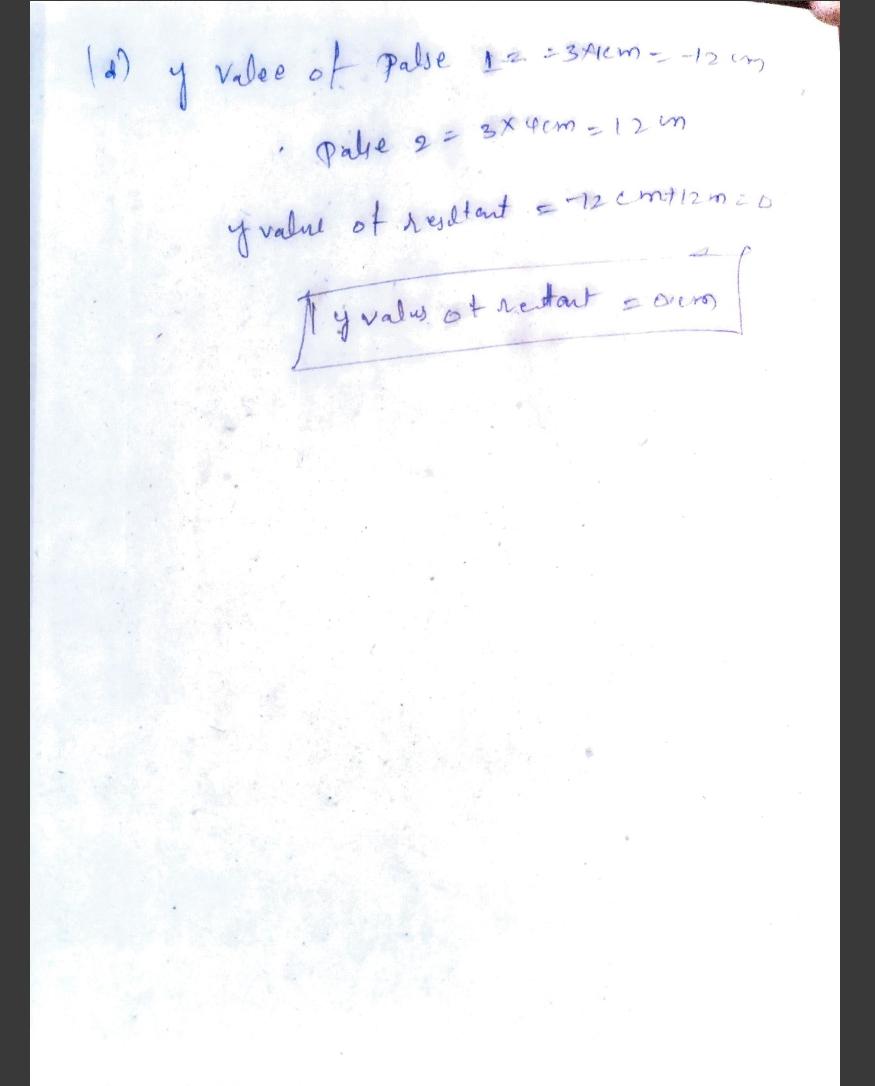 (d) y Valee of Palse 1 = = 3×4cm = -12 cm
Palse 2 = 3×4cm = 12 cm
y value of resltant = -12 cm+12m = 0
y value of restant = 0 cm